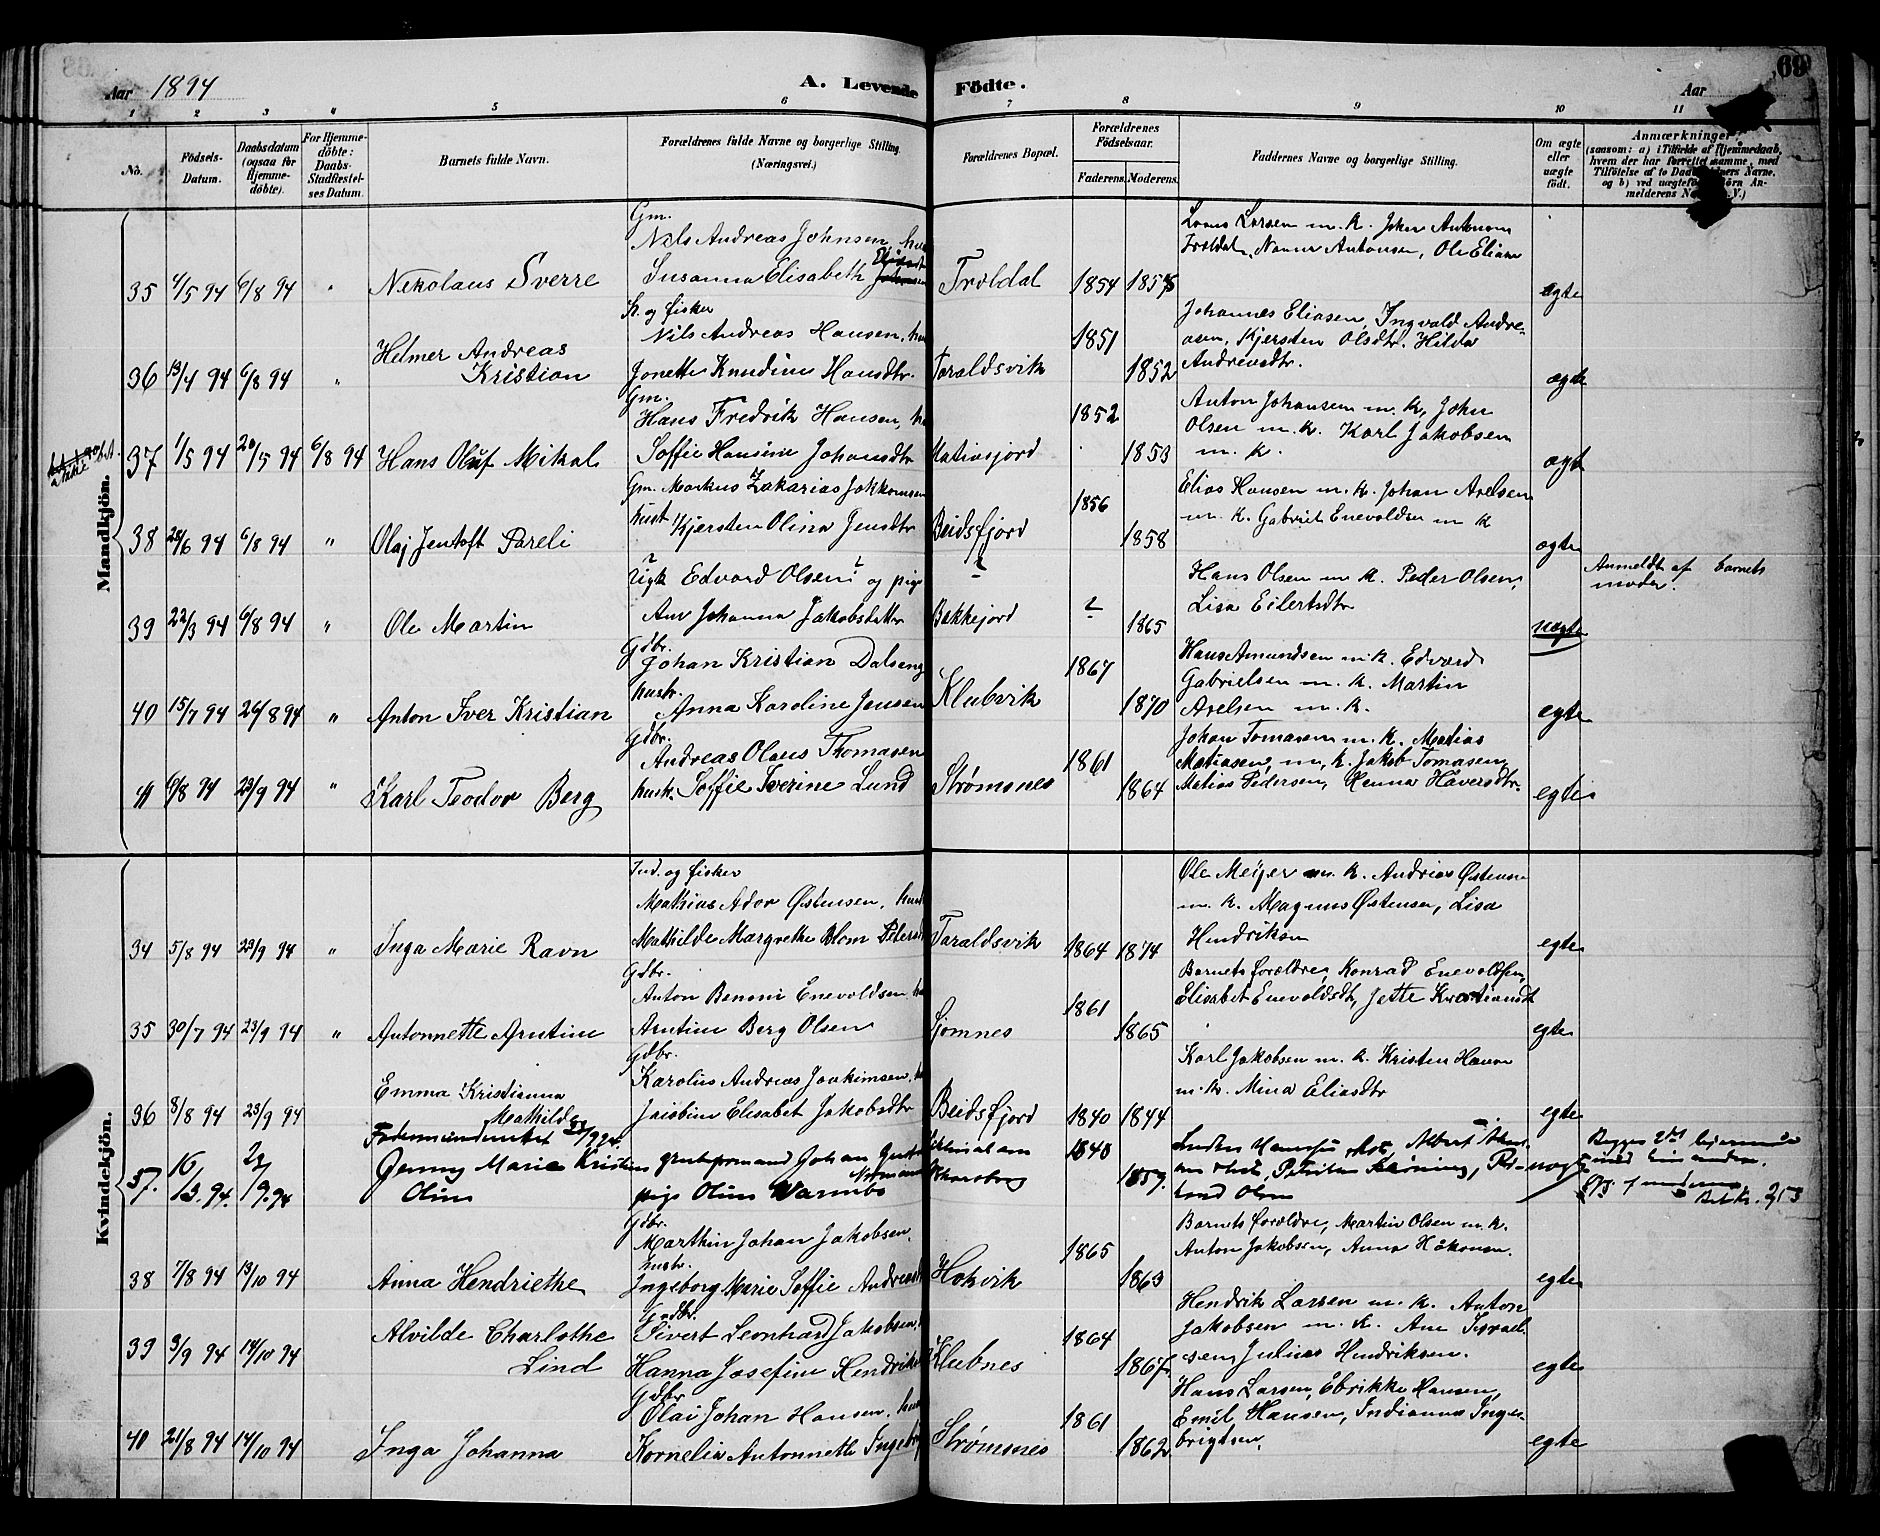 Aar 1894
A. Levende Födte.
Aar
69
1 2 3 4 5 6 7 8 9 10 11
No.
Födsels-Datum.
Daabsdatum (ogsaa for Hjemme-döbte).
For Hjemme-döbte: Daabs-Stadfæstel-ses Datum.
Barnets fulde Navn.
Forældrenes fulde Navne og borgerlige Stilling. (Næringsvei.)
Forældrenes Bopæl.
Forældrenes Födselsaar.
Faderens. Moderens.
Faddernes Navne og borgerlige Stilling.
Om ægte eller uægte födt.
Anmærkninger
(saasom: a) i Tilfælde af Hjemmedaab, hvem der har forrettet samme, med Tilföielse af to Daabsvidners Navne, og b) ved uægtefödte Börn An-melderens Navn
Mandkjön.
35 4/5 94 6/8 94 " Nikolaus Sverre
Gm. Nils Andreas Johnsen, hu
Susanna Elisabeth
Troldal 1854 1857
Lorns Larsen m. K. Joken Antonsen
Troldal, Nanna Antonsen, Ole Eliasen
egte
36 13/4 94 6/8 94 " Helmer Andreas Kristian
In. og fisker
Nils Andreas Hansen, hu
Jonette Knudine Hansdtr.
Taraldsvik 1851 1852
Johannes Eliasen, Ingvald Andre-
asen, Kjersten Olsdtr. Hilda
Andreasdtr.
ægte
37 1/5 94 20/5 94 6/8 94 Hans Oluf Mikal
Gm. Hans Fredrik Hansen, hu
Soffie Hansine Johansdtr
1852 1853
Anton Johansen m. K, John
Olsen m. K. Karl Jakobsen
m. K.
ægt
38 28/6 94 6/8 94 " Olaj Jentoft Pareli
Gm. Markus Zakarias Jokkumsen
hust Kjersten Olina Jensdtr
Beidsfjord 1856 1858
Elias Hansen m. K. Johan Axelsen
m. K. Gabriel Enevoldsen m K
ægte
39 22/3 94 6/8 94 " Ole Martin
? Ugk Edvard Olsen ? og pige
Ane Johanna Jakobsdatter
? Bakkejord ? 1865
Hans Olsen m K. Peder Olsen,
Lisa Eilertsdtr
uægte
Anmeldt af barnets
moder.
40 15/7 94 26/8 94 " Anton Iver Kristian
Gdbr. Johan Kristian Dalseng
hustr. Anna Karoline Jensen
Klubvik 1867 1870
Hans Amundsen m. K. Edvard
Gabrielsen m. K. Martin
Axelsen m. K.
egte
41 6/8 94 23/9 94 " Karl Teodor Berg
Gdbr. Andreas Olaus Thomasen
hust. Soffie Sverine Lund
Strømsnes 1861 1864
Johan Tomasen m. K. Matias
Matiasen, m, K. Jakob Tomasen,
Matias Pedersen, Henna Håversdtr.
egte
Kvindekjön.
34 5/8 94 23/9 94 " Inga Marie Ravn
Ind. og fisker
Mathias Ador Østensen, hust
Mathilde Margrethe Blom Peters
Taraldsvik 1864 1874
Ole Meijer m. K. Andreas Østensen
m. K. Magnus Østensen, Lisa
Hendriksen
egte
35 30/7 94 23/9 94 " Antonnette Arntine
Gdbr. Anton Benoni Enevoldsen, hu
Arntine Berg Olsen
Sjomnes 1861 1865
Barnets forældre, Konrad Enevoldsen,
Elisabet Enevoldsdt, Jette
egte
36 8/8 94 23/9 94 Emma Kristianna Mathilde
Gdbr. Karolius Andreas Joakimsen, hu
Jaisbine Elisabet Jakobsdtr
Beidsfjord 1840 1844
Karl Jakobsen m. K. Kristen Hansen
m. K. Mina Eliasdtr
egte
37. 16/3. 94. 23/9. 94 Jenny Marie Kristine Oline
grubeformand Johan
pige Oline Varmbo
1840 1859.
uægte
38 7/8 94 13/10 94 Anna Hendriethe
Gdbr. Marthin Johan Jakobsen,
hustr. Ingeborg Marie Soffie Andreas
Hokvik 1865 1863
Barnets forældre, Martin Olsen m. K.
Anton Jakobsen, Anna Håkonsen.
egte
39 3/9 94 14/10 94 Alvilde Charlothe Lind
Gdbr. Sivert Leonhard Jakobsen,
Hanna Josefine Hendriks
Klubnes 1864 1867
Hendrik Larsen m. K. Anton
Jakobsen m. K. Ane Israel-
sen, Julius Hendriksen.
egte
40 21/8 94 14/10 94 Inga Johanna
Gdbr Olai Johan Hansen, hu
Kornelia Antonnette Ingebr
Strømsnes 1861 1862
Hans Larsen, Ebrikke Hansen,
Emil Hansen, Indianna Inge-
brigtsen.
egte